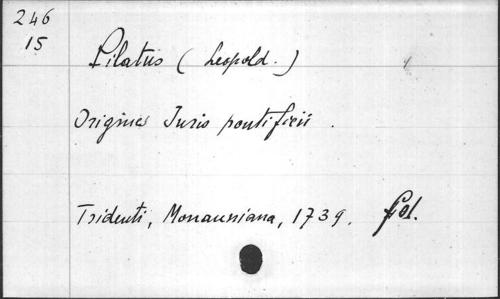 246
15
Pilatus (Leopold.)
Origines Juris pontificii.
Tridenti, Monauniana, 1739. fol.